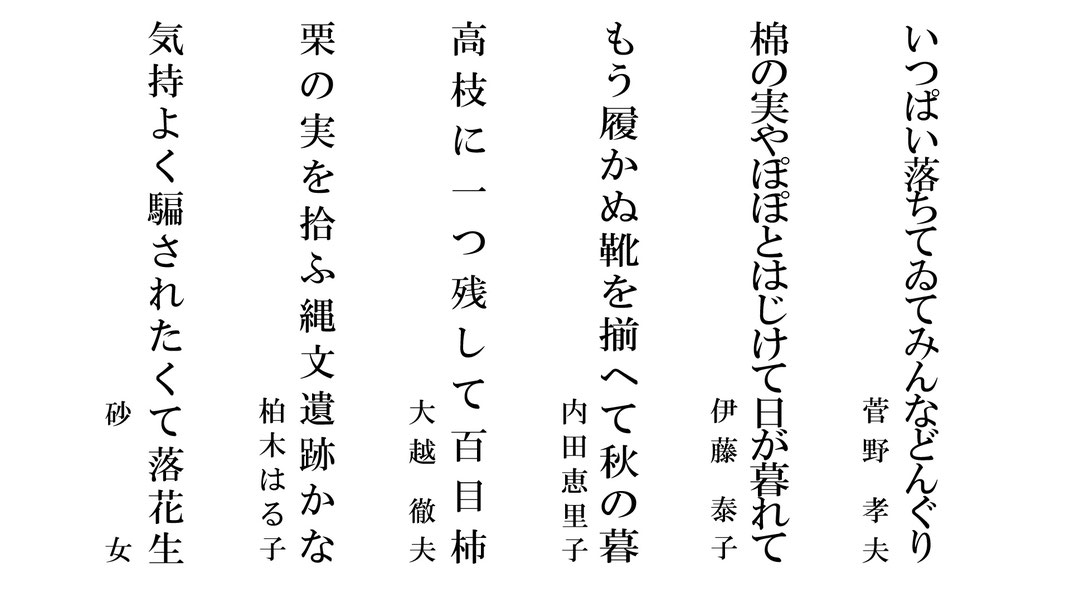 いつぱい落ちてゐてみんなどんぐり
菅野 孝夫
棉の実やぽぽとはじけて日が暮れて
伊藤 泰子
もう履かぬ靴を揃へて秋の暮
内田恵里子
高枝に一つ残して百目柿
大越 徹夫
栗の実を拾ふ縄文遺跡かな
柏木はる子
気持よく騙されたくて落花生
砂女